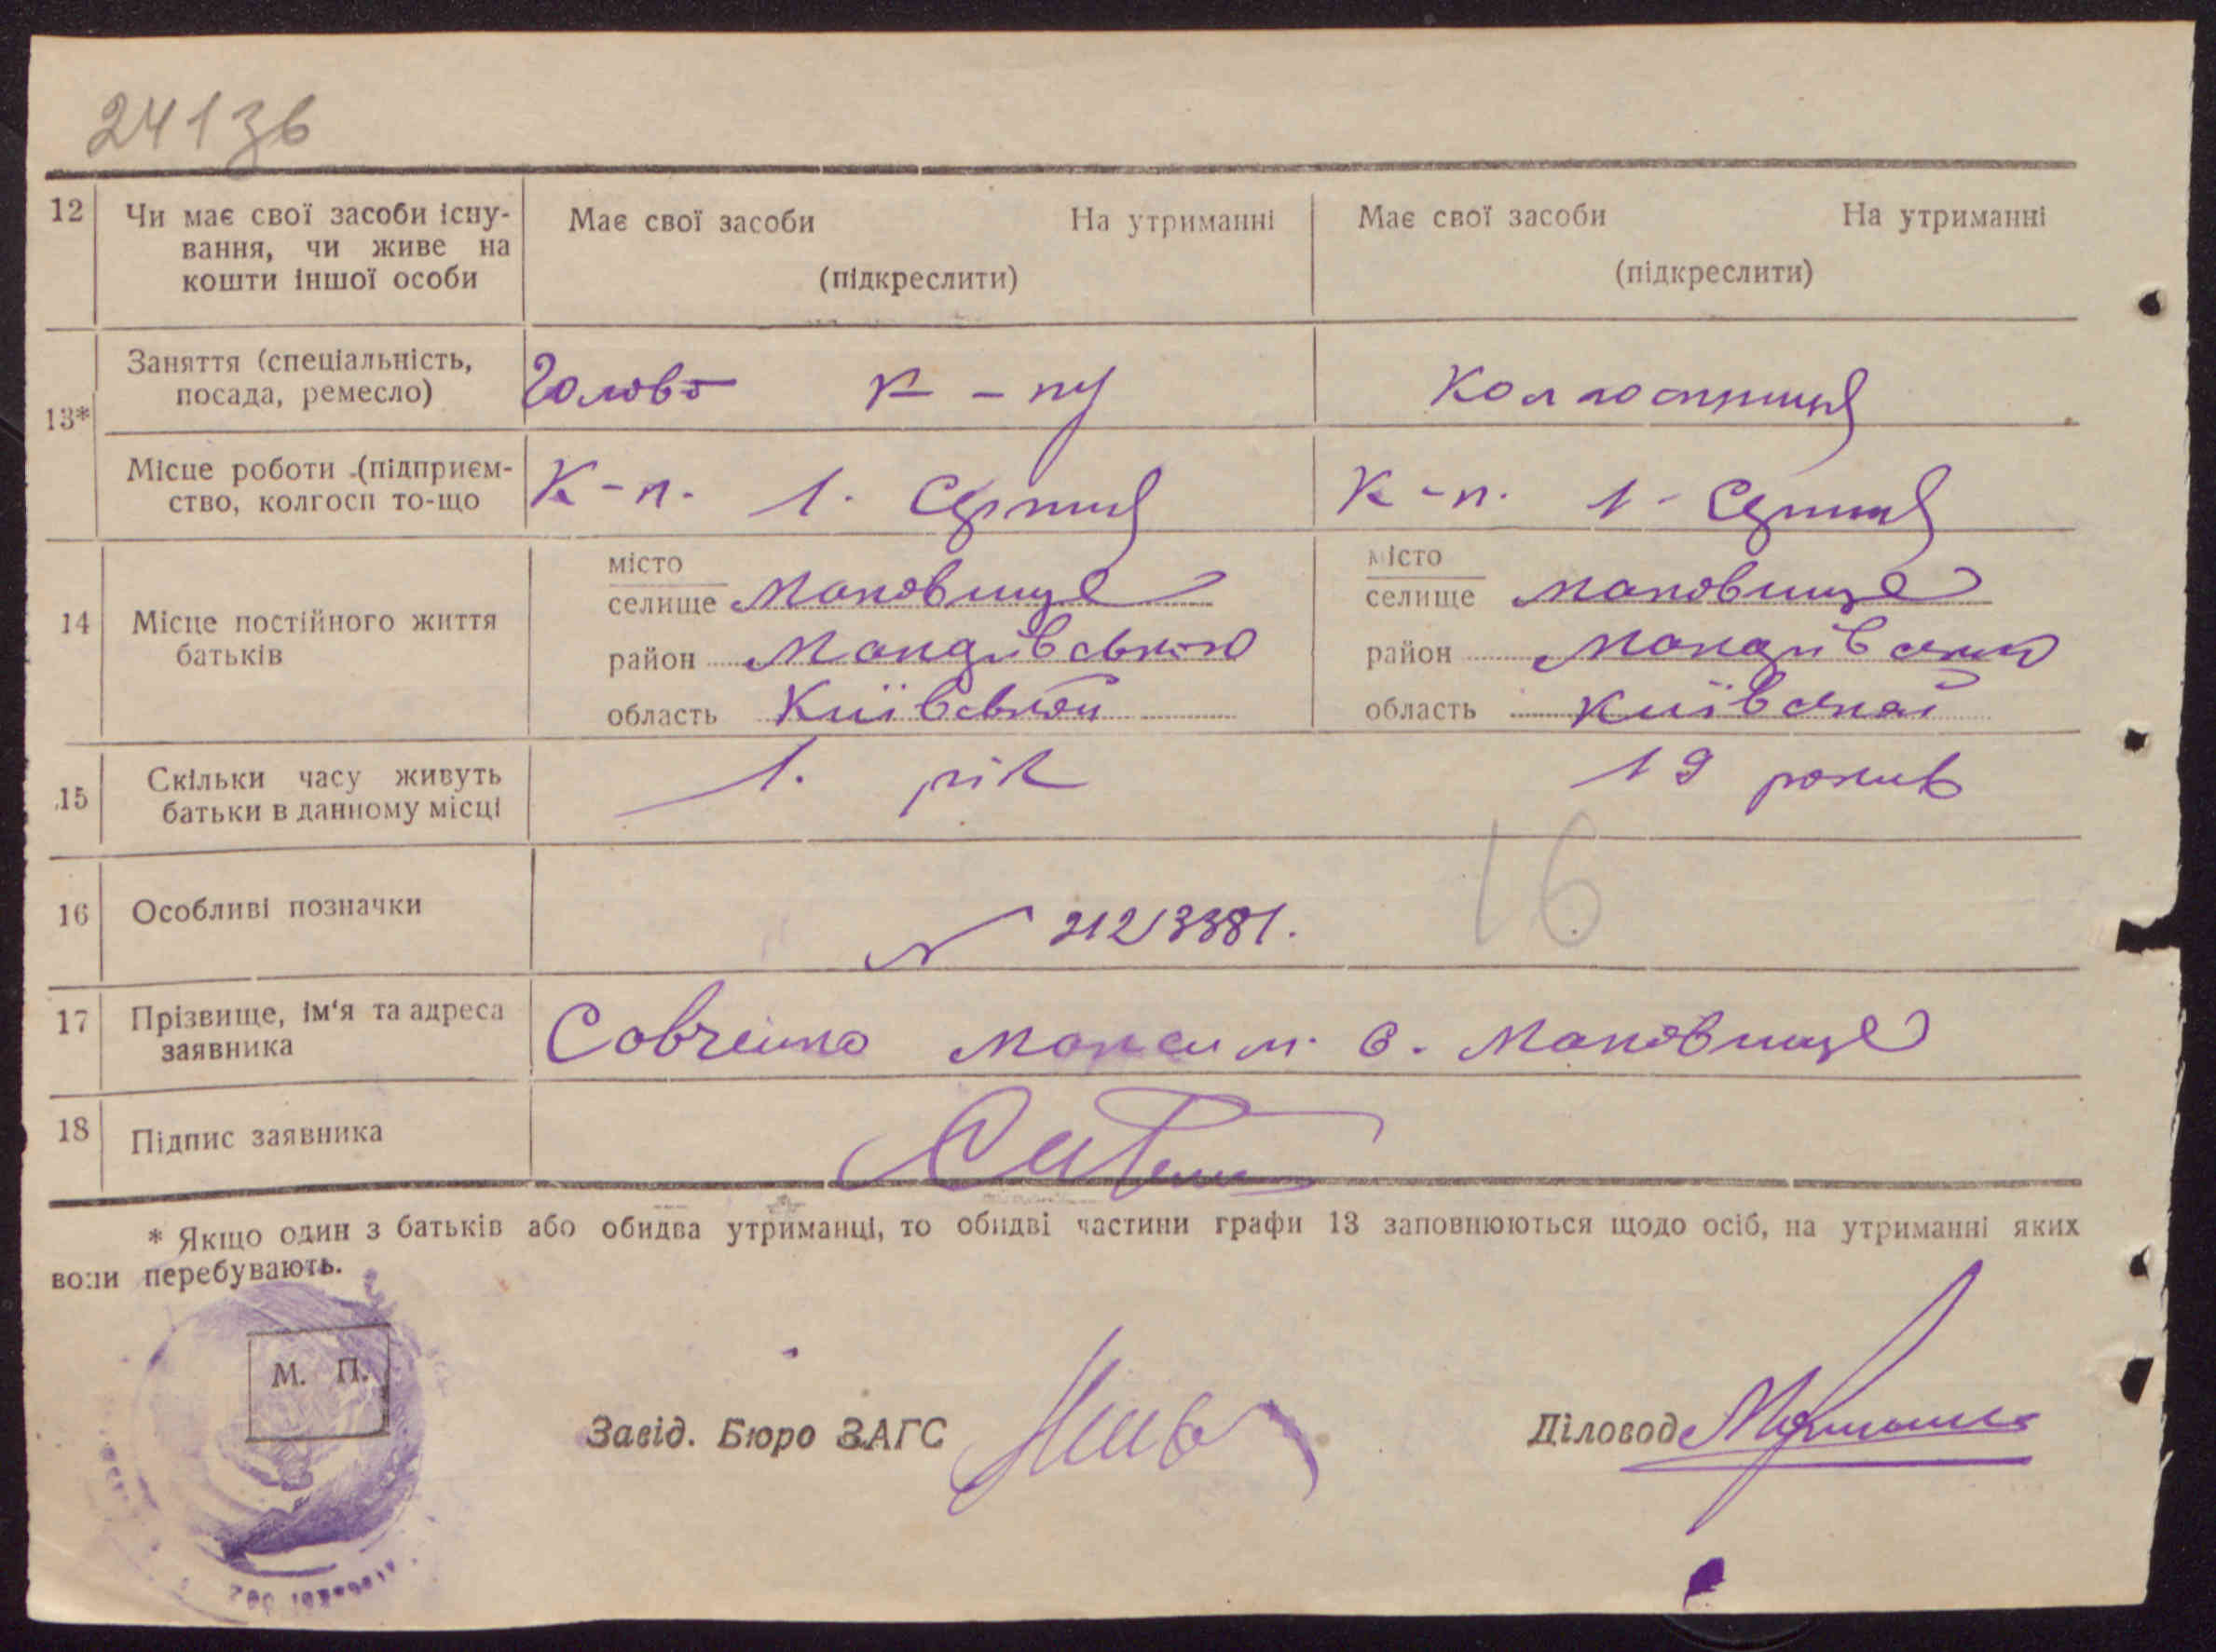 24136
12 Чи має свої засоби існу-
вання, чи живе на
кошти іншої особи
Має свої засоби На утриманні
(підкреслити)
Має свої засоби На утриманні
(підкреслити)
13*
Заняття (спеціальність,
посада, ремесло)
Голова к-пу
Колгоспниця
Місце роботи (підприєм-
ство, колгосп то-що
К-п. 1. Серпня
К-п. 1-Серпня
14 Місце постійного життя
батьків
місто
селище Маковище
район
область Київській
місто
селище Маковище
район
область Київській
15 Скільки часу живуть
батьки в данному місці
1. рік
19 років
16
16 Особливі позначки
N 2123381.
17 Прізвище, ім'я та адреса
заявника
Савченко Максим с. Маковище
18 Підпис заявника
* Якщо один з батьків або обидва утриманці, то обидві частини графи 13 заповнюються щодо осіб, на утриманні яких
вони перебувають.
М. П.
Завід. Бюро ЗАГС
Діловод